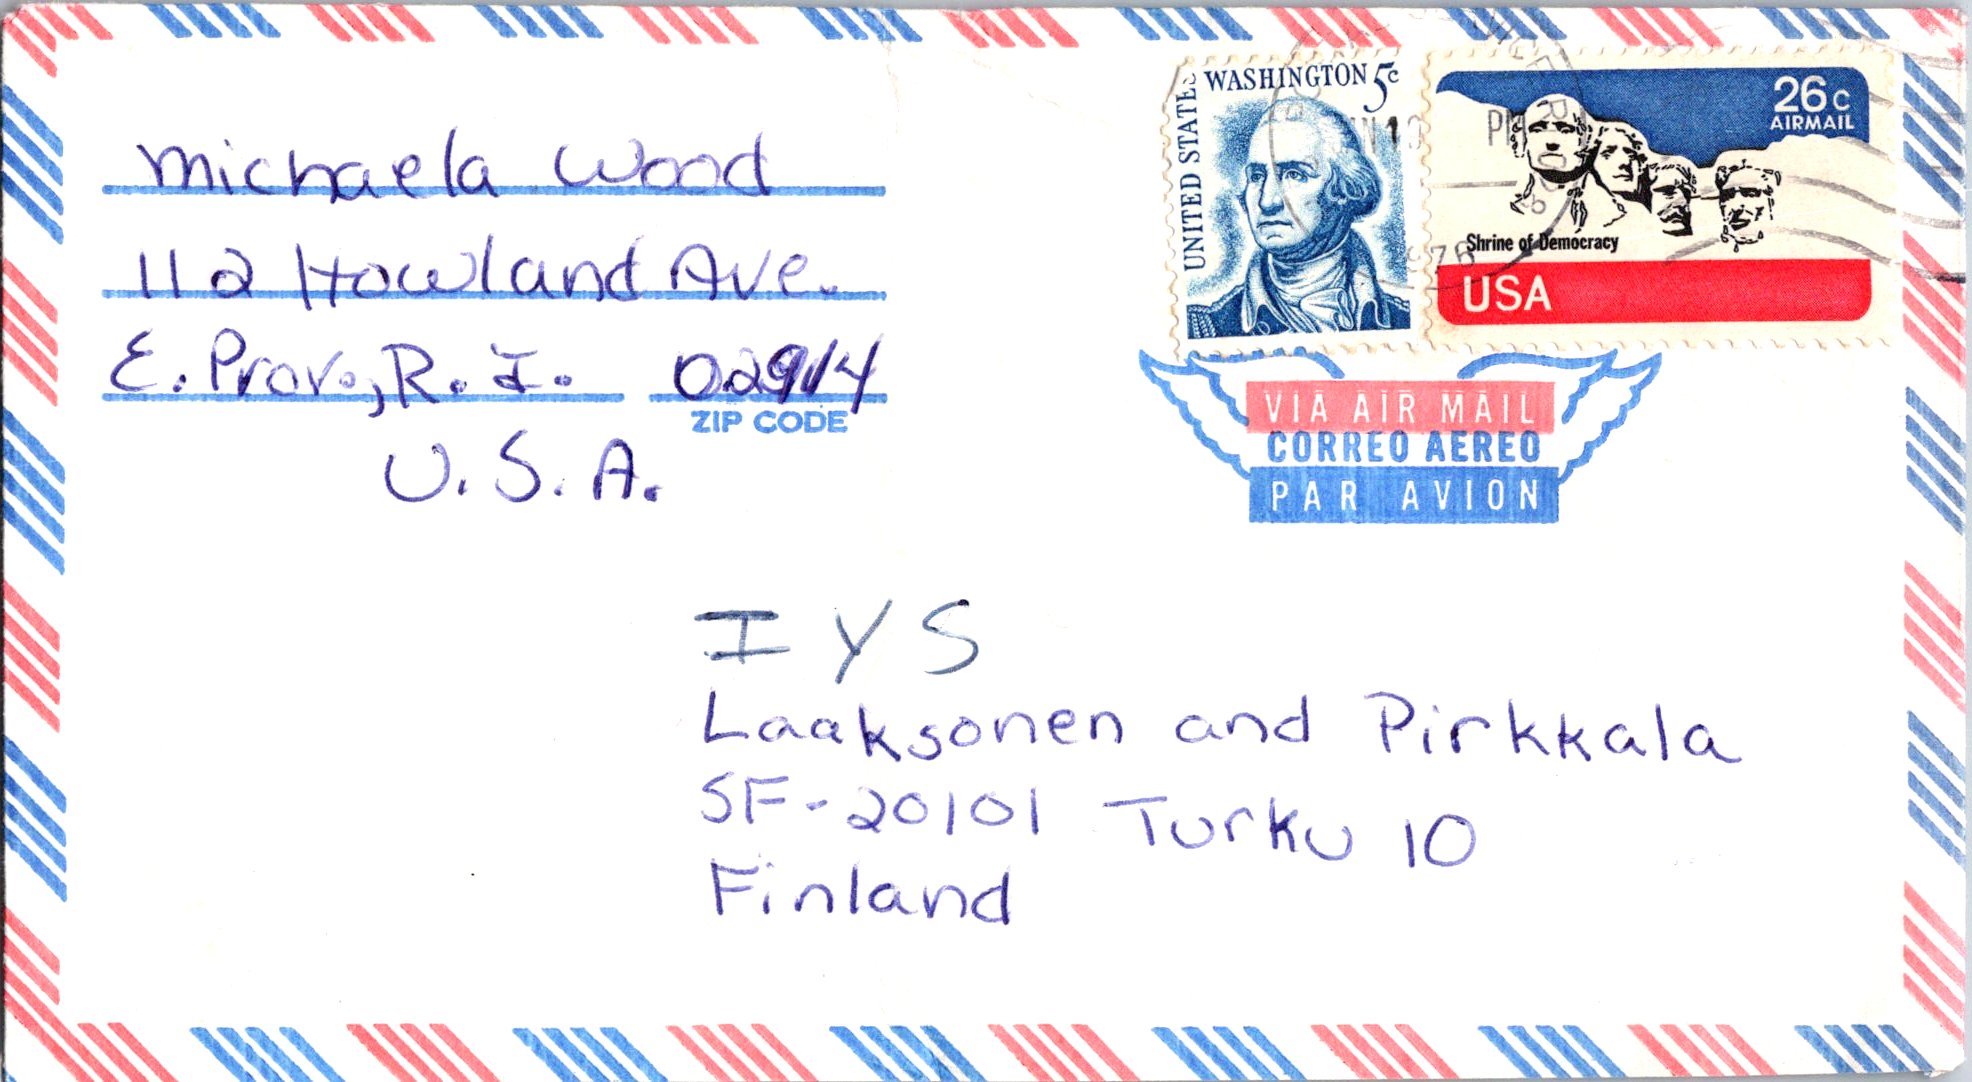 Michaela Wood
112 Howland Ave.
E. Prov., R.I. 02914
ZIP CODE
U.S.A.
UNITED STATES
WASHINGTON 5c
26c
AIRMAIL
Shrine of Democracy
USA
PM
VIA AIR MAIL
CORREO AEREO
PAR AVION
I Y S
Laaksonen and Pirkkala
SF-20101 Turku 10
Finland